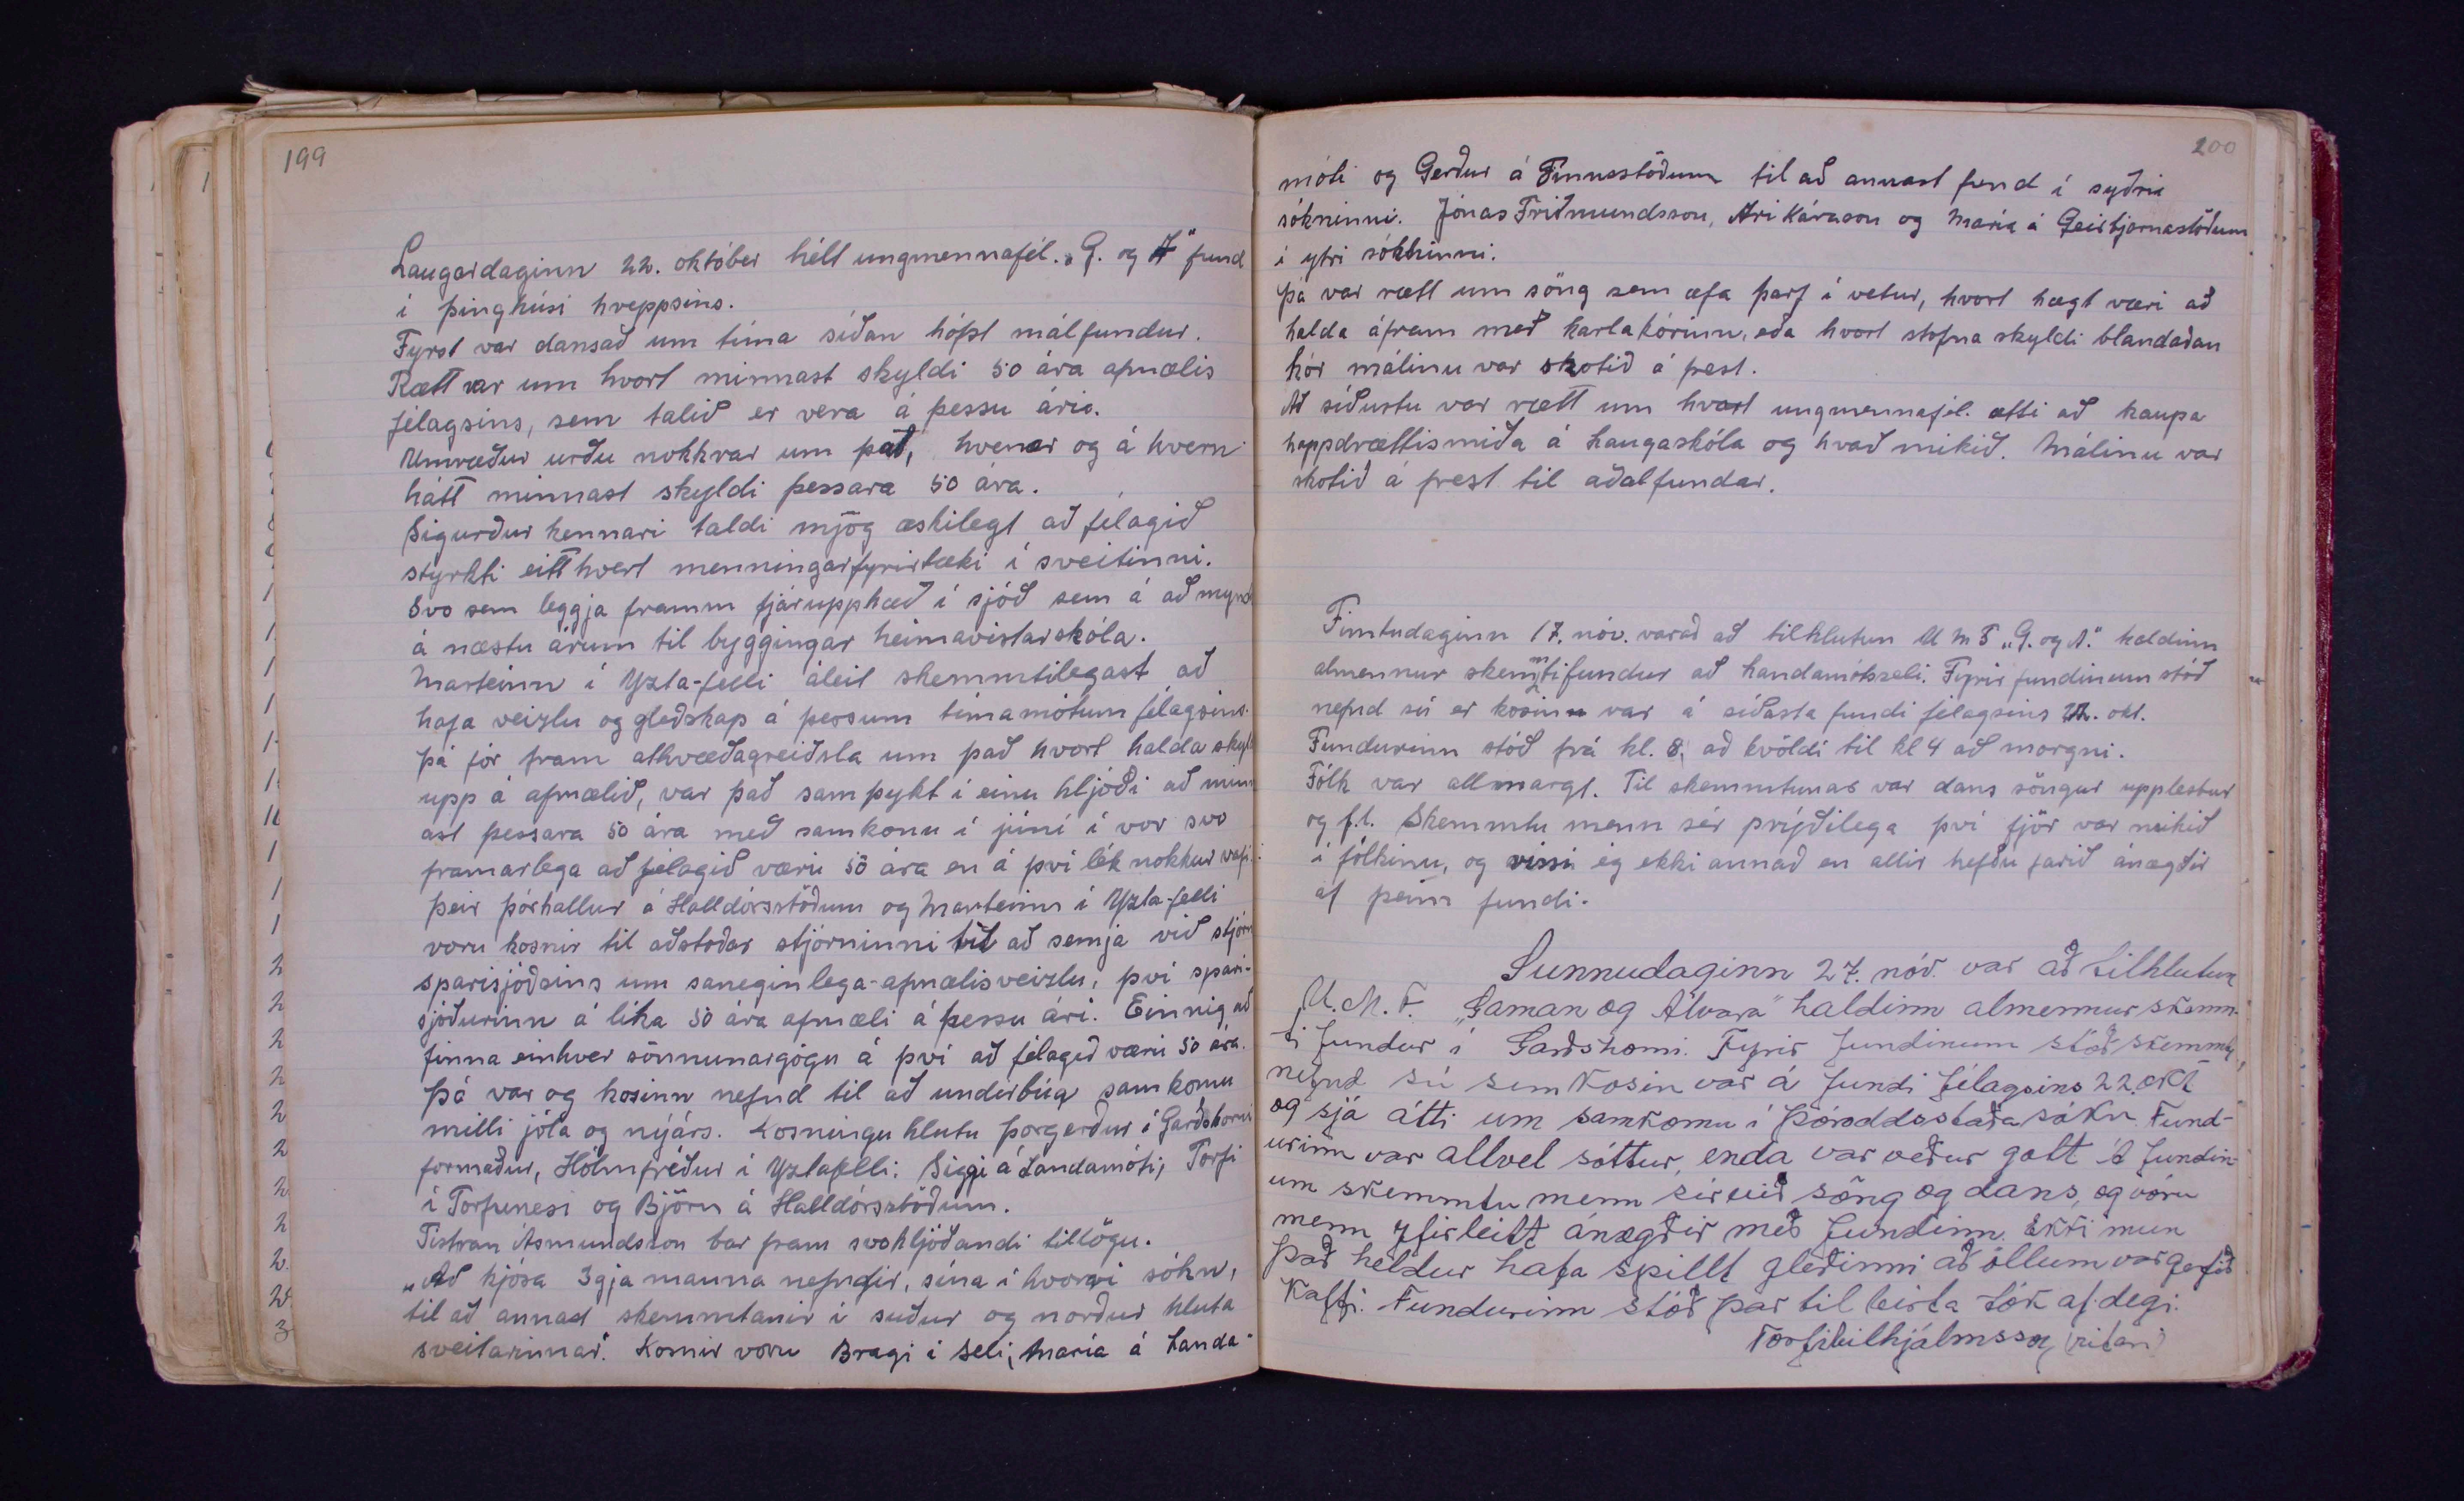 199
Laugardaginn 22. október hélt ungmennafél. „G. og A" fund
í þinghúsi hreppsins.
Fyrst var dansað um tíma síðan hófst málfundur.
Rætt var um hvort minnast skyldi 50 ára afmælis
félagsins, sem talið er vera á þessu ári.
Umræður urðu nokkrar um það, hvenær og á hvern
hátt minnast skyldi þessara 50 ára.
Sigurður kennari taldi mjög æskilegt að félagið
styrkti eitthvert menningarfyrirtæki í sveitinni.
Svo sem leggja framm fjárupphæð í sjóð sem á að mynd
á næstu árum til byggingar heimavistarskóla.
Marteinn í Yzta-felli áleit skemmtilegast að
hafa veizlu og gleðskap á þessum tímamótum félagsins.
Þá fór fram atkvæðagreiðsla um það hvort halda skyl
upp á afmælið, var það samþykt í einu hljóði að minn
ast þessara 50 ára með samkomu í júní í vor svo
framarlega að félagið væri 50 ára en á því lék nokkur vafi.
Þeir Þórhallur á Halldórsstöðum og Marteinn í Yzta-felli
voru kosnir til aðstoðar stjórninni til að semja við stjórn
sparisjóðsins um saneginlega-afmælisveizlu, því spari-
sjóðurinn á líka 50 ára afmæli á þessu ári. Einnig að
finna einhver sönnunargögn á því að félagið væri 50 ára.
Þá var og kosinn nefnd til að undirbúa samkomu
milli jóla og nýárs. Kosningu hlutu Þorgerður í Garðshorni
formaður, Hólmfríður í Yztafelli: Siggi á Landamóti, Torfi
í Torfunesi og Björn á Halldórsstöðum.
Tistran Ásmundsson bar fram svohljóðandi tillögu.
„Að kjósa 3gja manna nefndir, sína í hvorri sókn,
til að annast skemmtanir í suður og norður hluta
sveitarinnar". Kosnir voru Bragi í Seli, María á Landa-
200
móti og Gerður á Finnsstöðum til að annast fund í syðri
sókninni. Jónas Friðmundsson, Ari Kárason og María á Geirbjarnastöðum
í ytri sókninni.
Þá var rætt um söng sem æfa þarf í vetur, hvort hægt væri að
halda áfram með karlakórinn, eða hvort stofna skyldi blandaðan
kór málinu var skotið á frest.
Að síðustu var rætt um hvort ungmennafél. ætti að kaupa
happdrættismiða á Laugaskóla og hvað mikið. Málinu var
skotið á frest til aðalfundar.
Fimtudaginn 17. nóv. varað að tilhlutun U M F „G. og A." haldinn
almennur skemmtifundur að Landamótsseli. Fyrir fundinum stóð
nefnd sú er kosinn var á síðasta fundi félagsins 22. okt.
Fundurinn stóð frá kl. 8, að kvöldi til kl 4 að morgni.
Fólk var allmargt. Til skemmtunar var dans söngur upplestur
og f.l. Skemmtu menn sér prýðilega því fjör var mikið
í fólkinu, og vissi ég ekki annað en allir hefðu farið ánægðir
af þeim fundi.
Sunnudaginn 27. nóv. var að tilhlutun
U.M.F. „Gaman og Alvara" haldinn almennur skemm-
ti fundur í Garðshorni. Fyrir fundinum stóð skemmti
nefnd sú sem kosin var á fundi félagsins 22. okt
og sjá átti um samkomu í Þóroddsstaðasókn. Fund-
urinn var allvel sóttur, enda var veður gott á fundin-
um skemmtu menn sér við söng og dans, og vóru
menn yfirleitt ánægðir með fundinn. Ekki mun
það heldur hafa spillt gleðinni að öllum var gefið
Kaffi. Fundurinn stóð þar til birta tók af degi.
Torfi Vilhjálmsson (ritari)